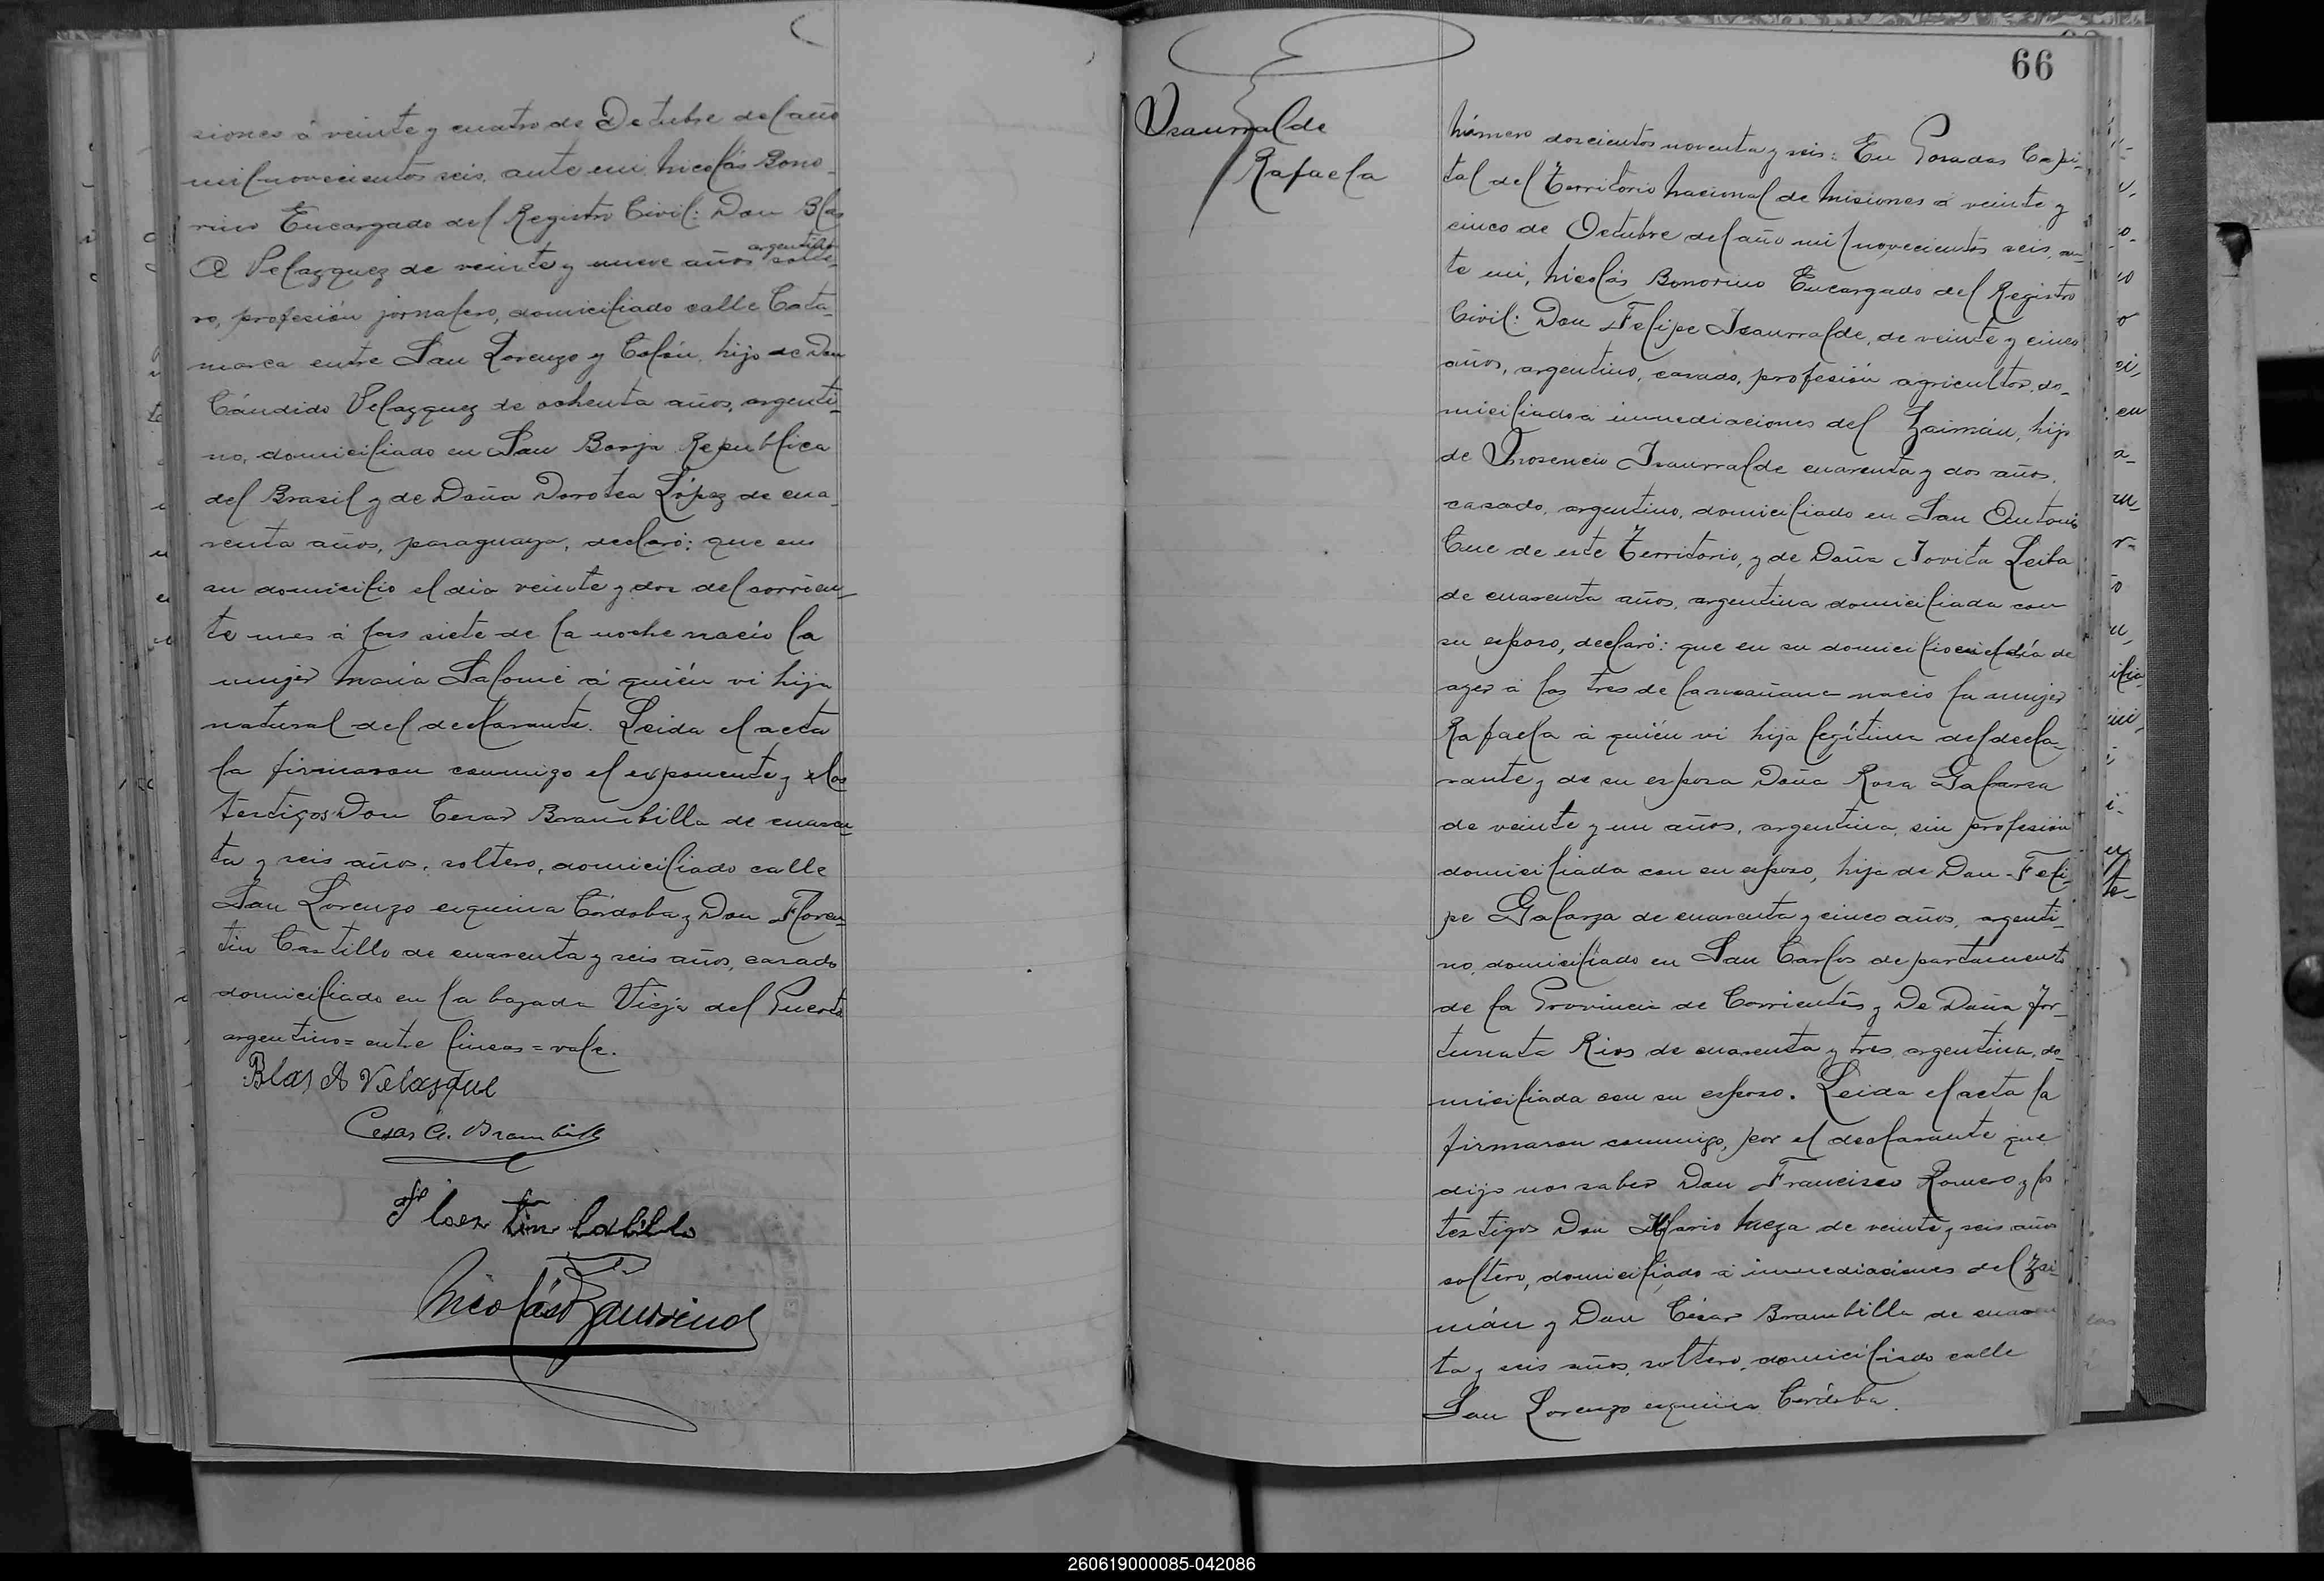 siones á veinte y cuatro de Octubre del año
mil novecientos seis, ante mi Nicolás Bono-
rino Encargado del Registro Civil: Don Blas
argentino
A Velazquez de veinte y nueve años solte-
ro, profesión jornalero, domiciliado calle Cata-
marca entre San Lorenzo y Colón, hijo de Don
Cándido Velazquez de ochenta años, argenti-
no, domiciliado en San Borja Republica
del Brasil y de Doña Dorotea López de cua-
renta años, paraguaya, declaró: que en
su domicilio el dia veinte y dos del corrien-
te mes á las siete de la noche nació la
mujer María Salomé á quién vi hija
natural del declarante. Leida el acta
la firmaron conmigo el exponente y los
testigos Don Cesar Brambilla de cuaren-
ta y seis años, soltero, domiciliado calle
San Lorenzo esquina Córdoba y Don Floren-
tin Castillo de cuarenta y seis años, casado
domiciliado en la bajada Vieja del Puerto
argentino = entre lineas = vale.
Blas A Velasque
Cesar A. Brambilla
Floren tin Castillo
Nicolás Bonorino
66
Ysaurralde
Rafaela
Número doscientos noventa y seis: En Posadas Capi-
tal del Territorio Nacional de Misiones á veinte y
cinco de Octubre del año mil novecientos seis, an-
te mi, Nicolás Bonorino Encargado del Registro
Civil: Don Felipe Isaurralde, de veinte y cinco
años, argentino, casado, profesión agricultor, do-
miciliado á inmediaciones del Zaimán, hijo
de Isaurralde cuarenta y dos años,
casado, argentino, domiciliado en San Antonio
Cue de este Territorio, y de Doña Jovita Leiba
de cuarenta años, argentina domiciliada con
su esposo, declaró: que en su domicilio en el día de
ayer á las tres de la mañana nació la mujer
Rafaela á quién vi hija legítima del decla-
rante y de su esposa Doña Rosa Galarza
de veinte y un años, argentina, sin profesión
domiciliada con su esposo, hija de Don Feli-
pe Galarza de cuarenta y cinco años, argenti-
no, domiciliado en San Carlos departamento
de la Provincia de Corrientes y De Doña For-
tunata Rios de cuarenta y tres, argentina, do-
miciliada con su esposo. Leida el acta la
firmaron conmigo, por el declarante que
dijo nos saber Don Francisco Romero y los
testigos Don Ilario Meza de veinte y seis años
soltero, domiciliado á inmediaciones del Zai-
mán y Don César Brambilla de cuaren
ta y seis años, soltero, domiciliado calle
San Lorenzo esquina Córdoba.
260619000085-042086